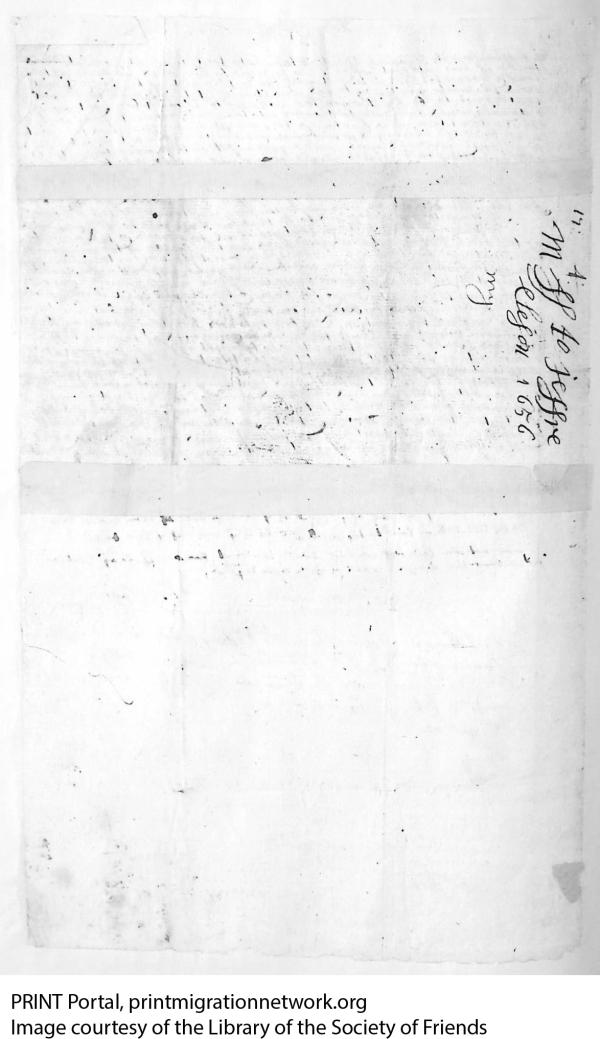 17: 4:
M ff to Jeffre
Elyson 1656
my
PRINT Portal, printmigrationnetwork.org
Image courtesy of the Library of the Society of Friends